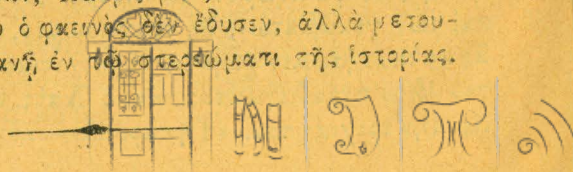 ὁ φαεινὸς δὲν ἔδυσεν, ἀλλὰ μεσου-
ἐν τῷ στερεώματι τῆς ἱστορίας.